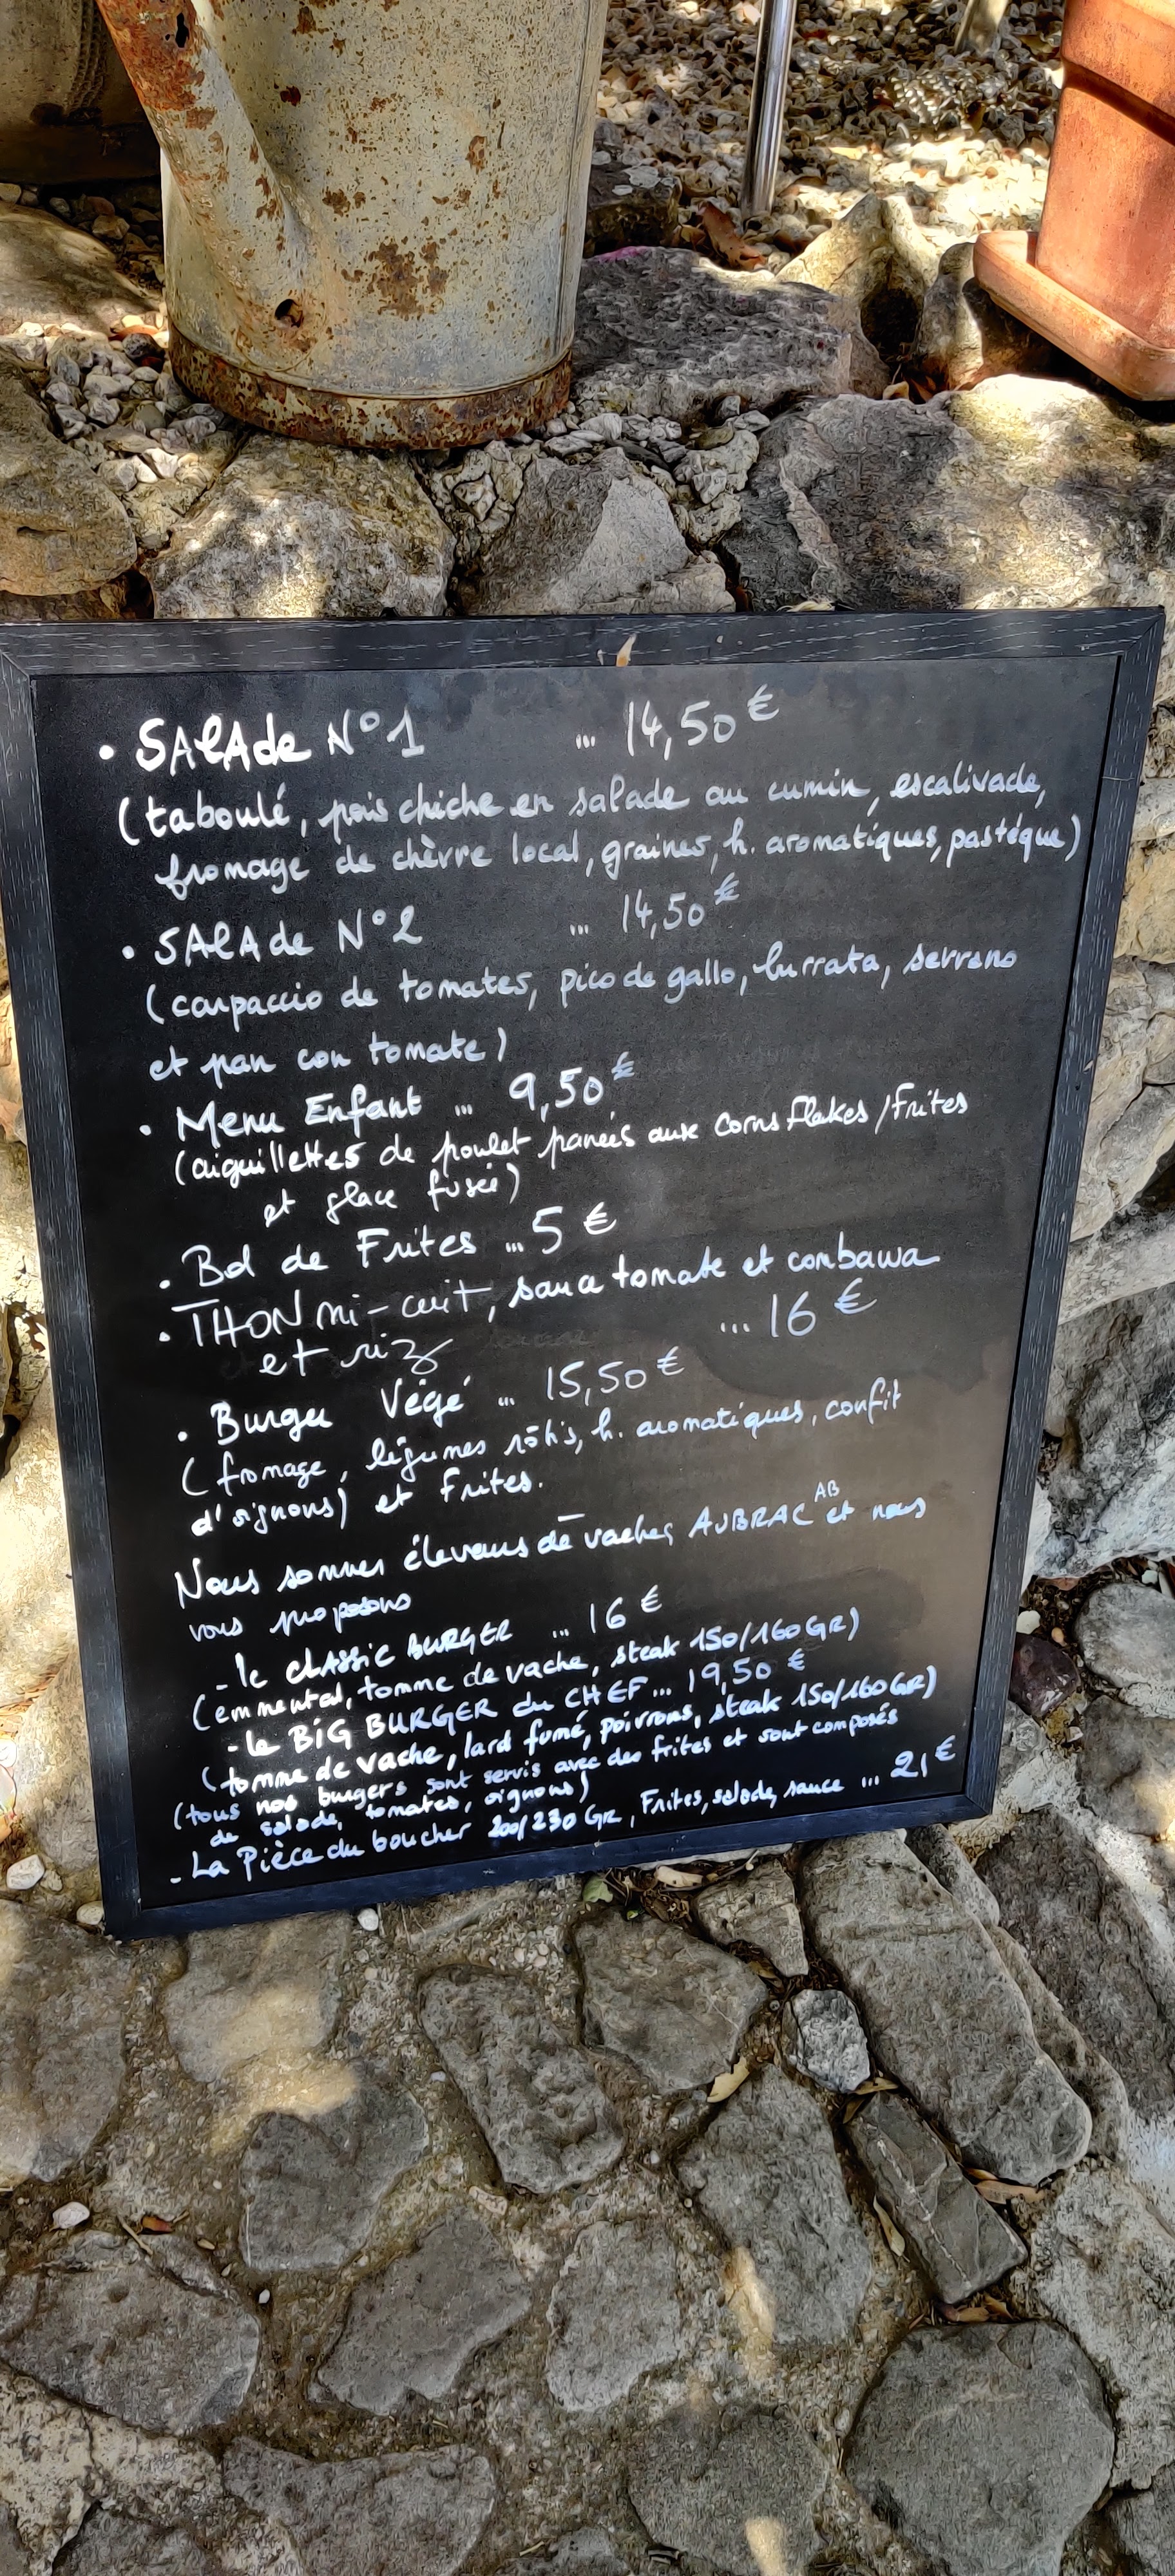 • SALAde N°1 ... 14,50€
(taboulé, pois chiche en salade au cumin, escalivade,
fromage de chèvre local, graines, h. aromatiques, pastéque)
• SALAde N°2 ... 14,50€
(carpaccio de tomates, pico de gallo, burrata, serrano
et pan con tomate)
• Menu Enfant ... 9,50€
(aiguillettes de poulet panées aux Corns Flakes/Frites
et glace fusée)
• Bol de Frites ... 5 €
• THON mi-cuit, sauce tomate et conbawa
et riz ... 16 €
• Burger Végé ... 15,50€
(fromage, légumes rôtis, h. aromatiques, confit
d'oignons) et Frites.
Nous sommes éleveurs de vaches AUBRAC AB et nous
vous proposons
- le CLASSIC BURGER ... 16 €
(emmental, tomme de vache, steak 150/160 GR)
- le BIG BURGER du CHEF ... 19,50 €
(tomme de vache, lard fumé, poivrons, steak 150/160 GR)
(tous nos burgers sont servis avec des frites et sont composés
de salade, tomates, oignons)
- La Pièce du boucher 200/230 GR, Frites, salade, sauce ... 21€